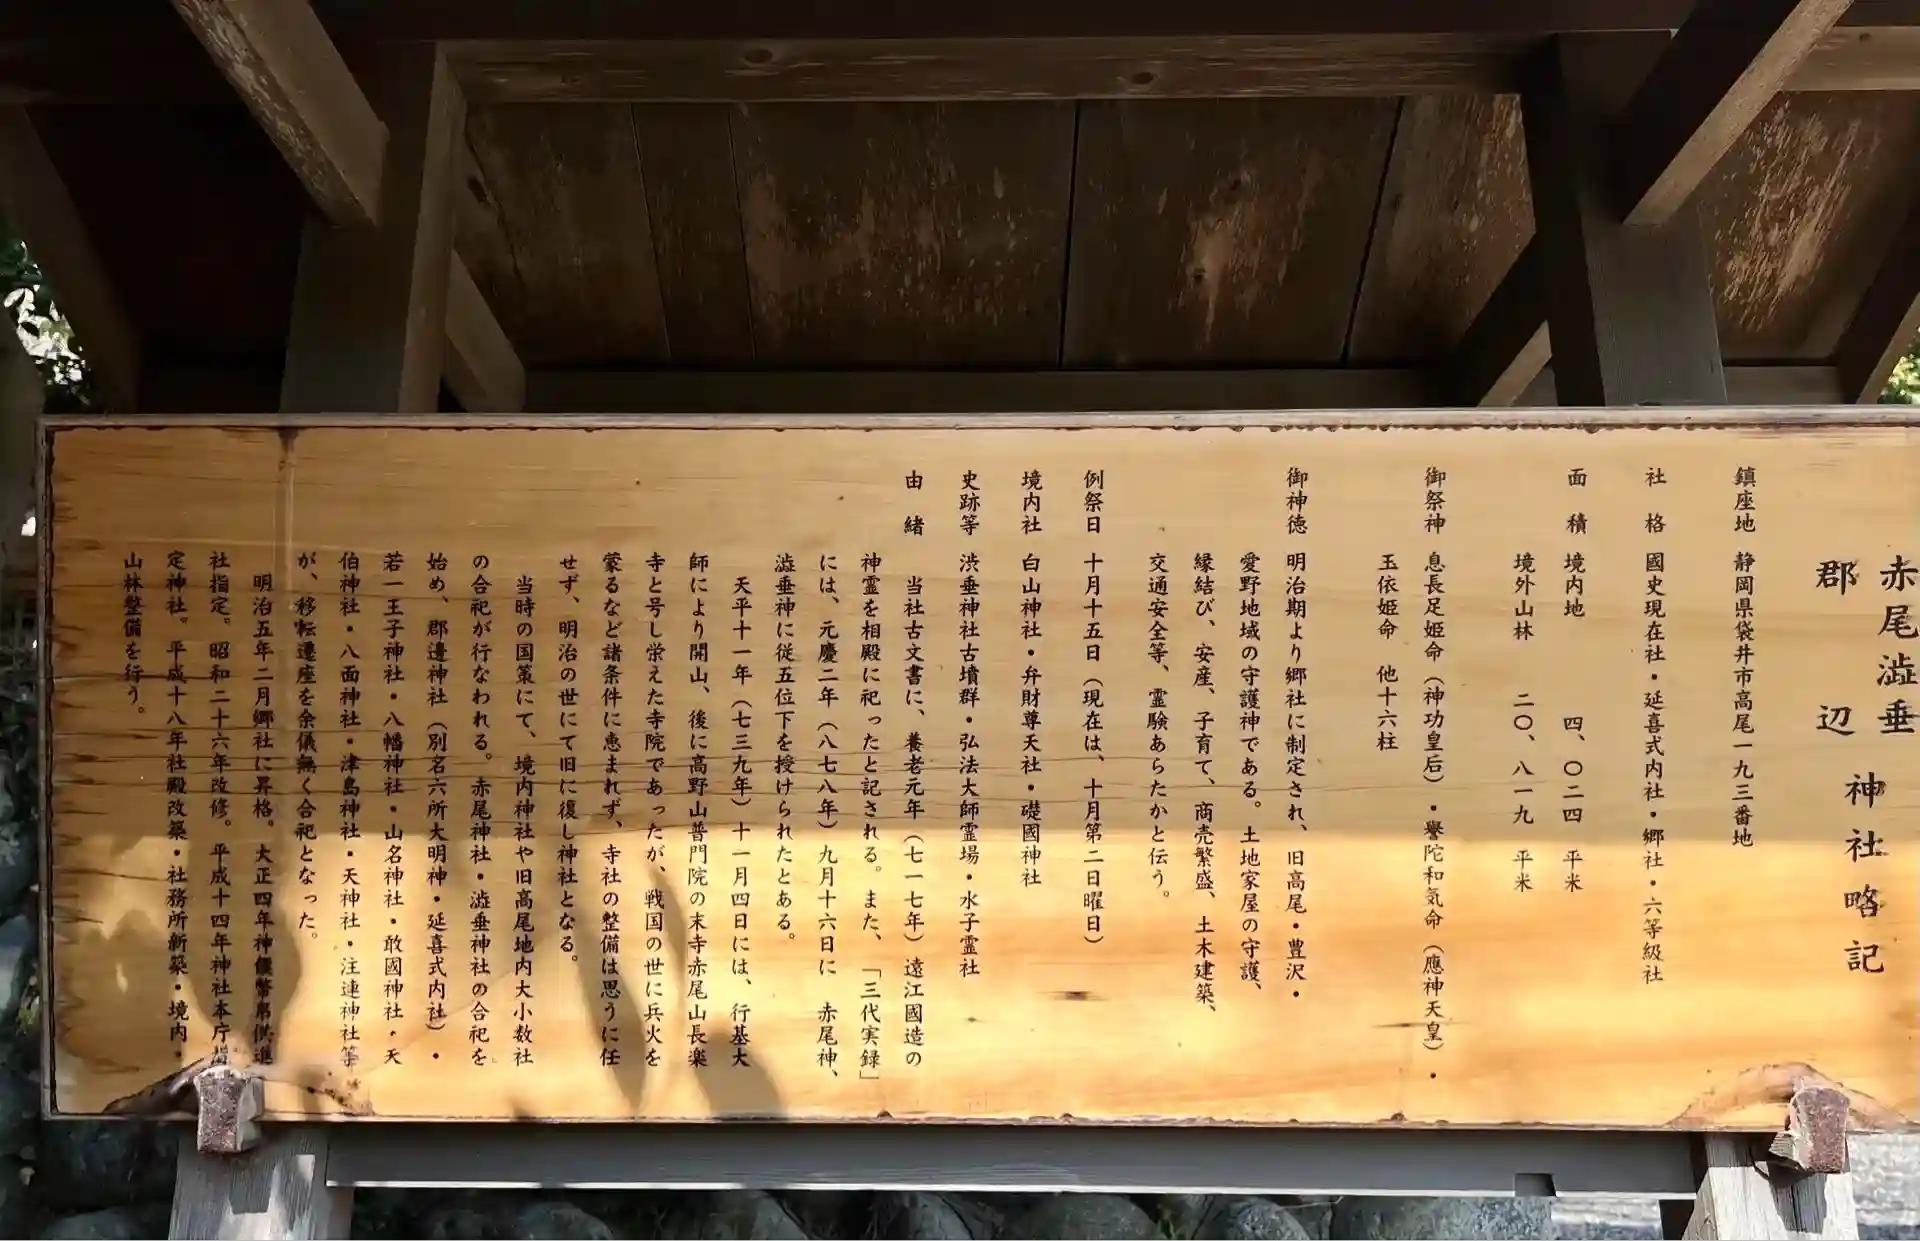 赤尾澁垂
郡辺
神社略記
鎮座地 静岡県袋井市高尾一九三番地
社格 國史現在社・延喜式内社・郷社・六等級社
面積 境内地 四、〇二四 平米
境外山林 二〇、八一九 平米
御祭神 息長足姫命(神功皇后)・譽陀和気命(應神天皇)・
玉依姫命 他十六柱
御神徳 明治期より郷社に制定され、旧高尾・豊沢・
愛野地域の守護神である。土地家屋の守護、
縁結び、安産、子育て、商売繁盛、土木建築、
交通安全等、霊験あらたかと伝う。
例祭日 十月十五日(現在は、十月第二日曜日)
境内社 白山神社・弁財尊天社・礎國神社
史跡等 渋垂神社古墳群・弘法大師霊場・水子霊社
由緒 当社古文書に、養老元年(七一七年)遠江國造の
神霊を相殿に祀ったと記される。また、「三代実録」
には、元慶二年(八七八年)九月十六日に 赤尾神、
澁垂神に従五位下を授けられたとある。
天平十一年(七三九年)十一月四日には、行基大
師により開山、後に高野山普門院の末寺赤尾山長楽
寺と号し栄えた寺院であったが、戦国の世に兵火を
蒙るなど諸条件に恵まれず、寺社の整備は思うに任
せず、明治の世にて旧に復し神社となる。
当時の国策にて、境内神社や旧高尾地内大小数社
の合祀が行なわれる。赤尾神社・澁垂神社の合祀を
始め、郡邊神社(別名六所大明神・延喜式内社)・
若一王子神社・八幡神社・山名神社・敢國神社・天
伯神社・八面神社・津島神社・天神社・注連神社等
が、移転遷座を余儀無く合祀となった。
明治五年二月郷社に昇格。大正四年神饌幣帛供進
社指定。昭和二十六年改修。平成十四年神社本庁
定神社。平成十八年社殿改築・社務所新築・境内・
山林整備を行う。